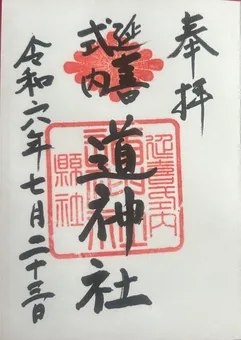 奉拝
延喜
式内
道神社
令和六年七月二十三日
延喜式内
縣社